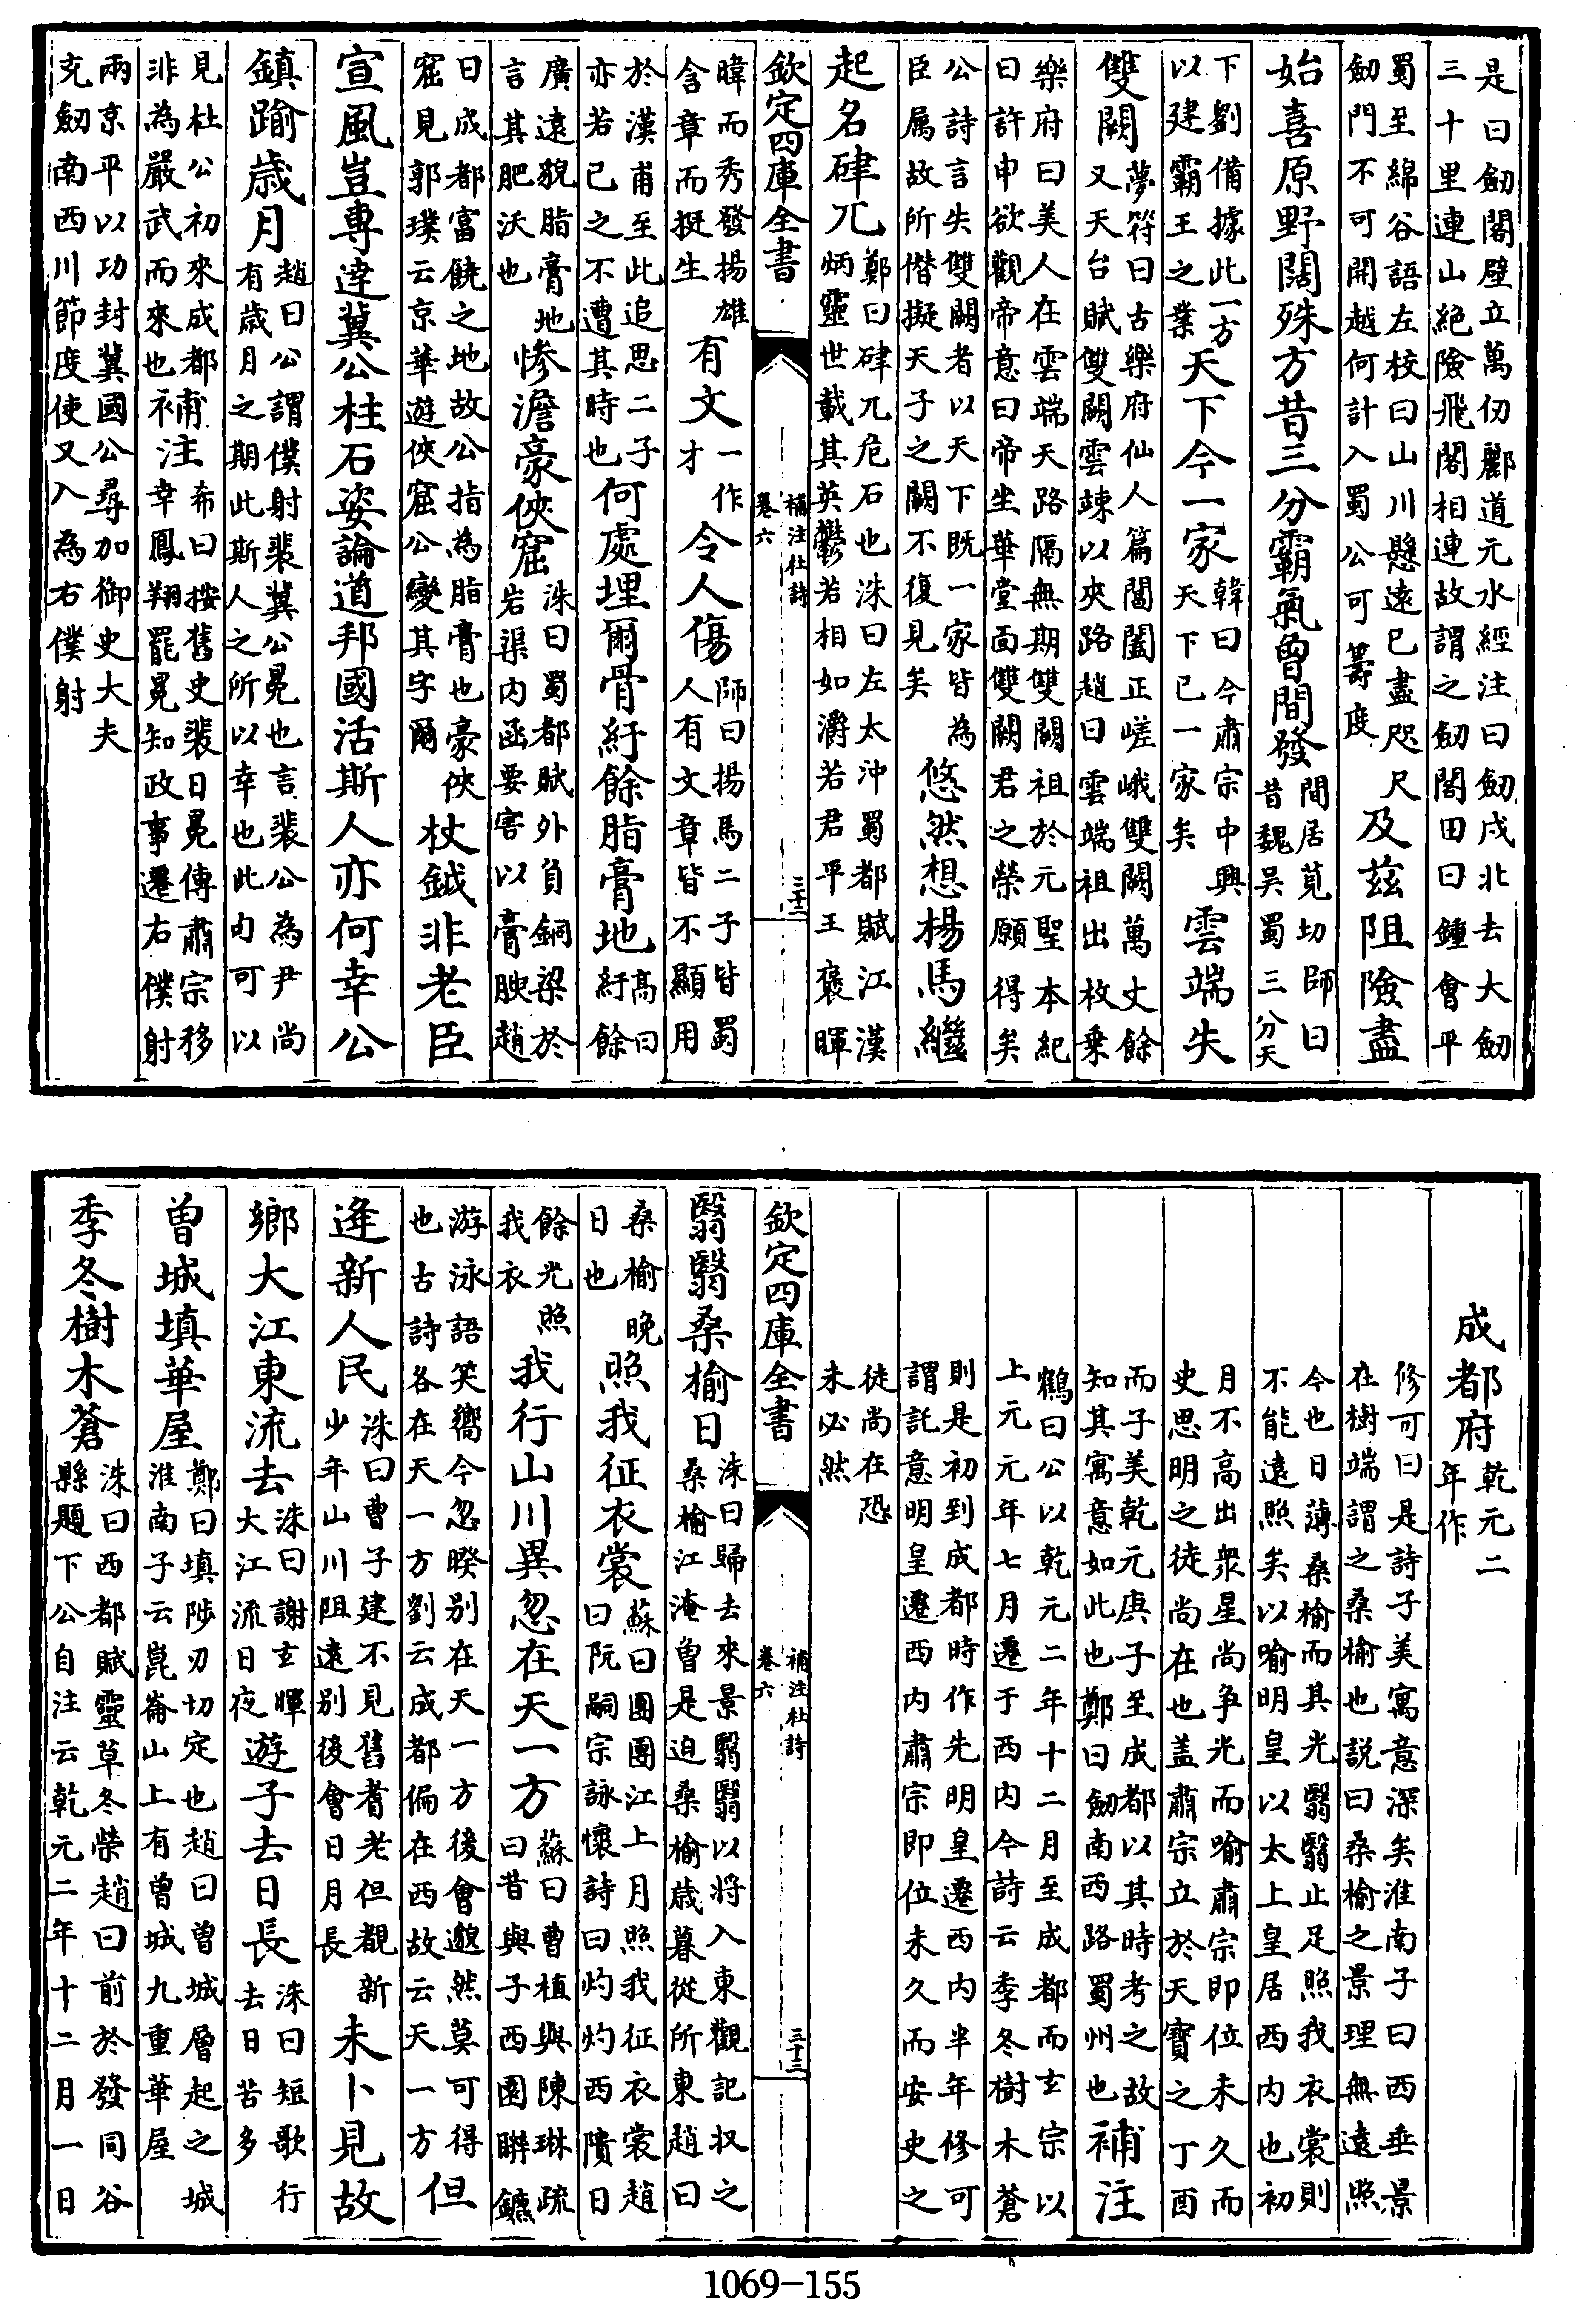 是曰劒閣壁立萬仞酈道元水經注曰劒戍北去大劒
三十里連山絶險飛閣相連故謂之劒閣田曰鍾會平
蜀至綿谷語左校曰山川懸逺已盡咫尺
劒門不可開越何計入蜀公可籌度
及茲阻險盡
始喜原野闊殊方昔三分霸氣曾間發
間居莧切師曰
昔魏吳蜀三分天
下劉備據此一方
以建霸王之業
天下今一家
韓曰今肅宗中興
天下已一家矣
雲端失
雙闕
夢符曰古樂府仙人篇閶闔正嵯峨雙闕萬丈餘
又天台賦雙闕雲竦以夾路趙曰雲端祖出枚乗
樂府曰美人在雲端天路隔無期雙闕祖於元聖本紀
曰許由欲觀帝意曰帝坐華堂面雙闕君之榮願得矣
公詩言失雙闕者以天下既一家皆為
臣屬故所僭擬天子之闕不復見矣
悠然想楊馬繼
起名硉兀
鄭曰硉兀危石也洙曰左太沖蜀都賦江漢
炳靈世載其英鬱若相如灂若君平王褒暉
欽定四庫全書
補注杜詩
卷六
三十二
暐而秀發揚雄
含章而挺生
有文
一作
才
令人傷
師曰揚馬二子皆蜀
人有文章皆不顯用
於漢甫至此追思二子
亦若己之不遭其時也
何處埋爾骨紆餘脂膏地
高曰
紆餘
廣逺貌脂膏地
言其肥沃也
惨澹豪俠窟
洙曰蜀都賦外負銅梁於
岩渠内函要害以膏腴趙
曰成都富饒之地故公指為脂膏也豪俠
窟見郭璞云京華遊俠窟公變其字爾
杖鉞非老臣
宣風豈専逹冀公柱石姿論道邦國活斯人亦何幸公
鎮踰歲月
趙曰公謂僕射裴冀公冕也言裴公為尹尚
有歲月之期此斯人之所以幸也此句可以
見杜公初來成都
非為嚴武而來也
補注
希曰按舊史裴冕傳肅宗移
幸鳳翔罷冕知政事遷右僕射
兩京平以功封冀國公尋加御史大夫
充劒南西川節度使又入為右僕射
成都府
乾元二
年作
修可曰是詩子美寓意深矣淮南子曰西垂景
在樹端謂之桑榆也説曰桑榆之景理無逺照
今也日薄桑榆而其光翳翳止足照我衣裳則
不能逺照矣以喻明皇以太上皇居西内也初
月不高出衆星尚爭光而喻肅宗即位未久而
史思明之徒尚在也盖肅宗立於天寳之丁酉
而子美乾元庚子至成都以其時考之故
知其寓意如此也鄭曰劒南西路蜀州也
補注
鶴曰公以乾元二年十二月至成都而玄宗以
上元元年七月遷于西内今詩云季冬樹木蒼
則是初到成都時作先明皇遷西内半年修可
謂託意明皇遷西内肅宗即位未久而安史之
徒尚在恐
未必然
欽定四庫全書
補注杜詩
卷六
三十三
翳翳桑榆日
洙曰歸去來景翳翳以將入東觀記収之
桑榆江淹曽是迫桑榆歲暮從所東趙曰
桑榆晚
日也
照我征衣裳
蘇曰團團江上月照我征衣裳趙
曰阮嗣宗詠懷詩曰灼灼西隤日
餘光照
我衣
我行山川異忽在天一方
蘇曰曹植與陳琳疏
曰昔與子西園聨鑣
游泳語笑嚮今忽暌別在天一方後會邈然莫可得
也古詩各在天一方劉云成都偏在西故云天一方
但
逢新人民
洙曰曹子建不見舊耆老但覩新
少年山川阻逺別後會日月長
未卜見故
鄉大江東流去
洙曰謝玄暉
大江流日夜
遊子去日長
洙曰短歌行
去日苦多
曽城填華屋
鄭曰填陟刃切定也趙曰曽城層起之城
淮南子云崑崙山上有曽城九重華屋
季冬樹木蒼
洙曰西都賦靈草冬榮趙曰前於發同谷
縣題下公自注云乾元二年十二月一日
1069-155